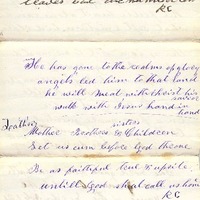 leaves but
RC
He has gone to the realms of glory
angels led him to that land
he will meet with christ his
savior
walk with Jesus hand in
hand
sisters
Mother Brothers & Children
let us ever before God
Be as faithful true &
untill God shall call us home
RC